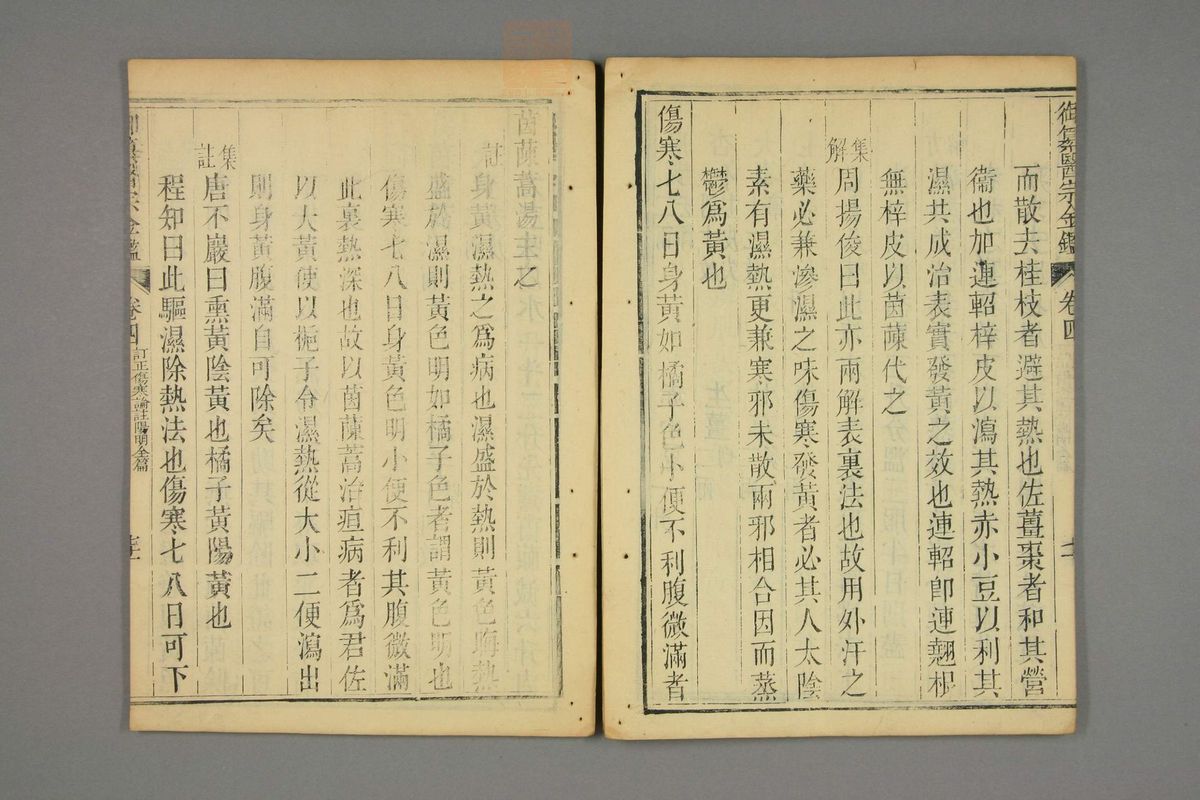 御纂醫宗金鑑 卷四
而散去桂枝者避其熱也佐薑棗者和其營
衞也加連軺梓皮以瀉其熱赤小豆以利其
濕共成治表實發黃之效也連軺卽連翹根
無梓皮以茵蔯代之
集解 周揚俊曰此亦兩解表裏法也故用外汗之
藥必兼滲濕之味傷寒發黃者必其人太陰
素有濕熱更兼寒邪未散兩邪相合因而蒸
鬱爲黃也
傷寒七八日身黃如橘子色小便不利腹微滿者
茵蔯蒿湯主之
註 身黃濕熱之爲病也濕盛於熱則黃色晦熱
盛於濕則黃色明如橘子色者謂黃色明也
傷寒七八日身黃色明小便不利其腹微滿
此裏熱深也故以茵蔯蒿治疸病者爲君佐
以大黃使以梔子令濕熱從大小二便瀉出
則身黃腹滿自可除矣
集註 唐不巖曰熏黃陰黃也橘子黃陽黃也
程知曰此驅濕除熱法也傷寒七八日可下
醫宗金鑑 卷四 訂正傷寒論註陽明全篇